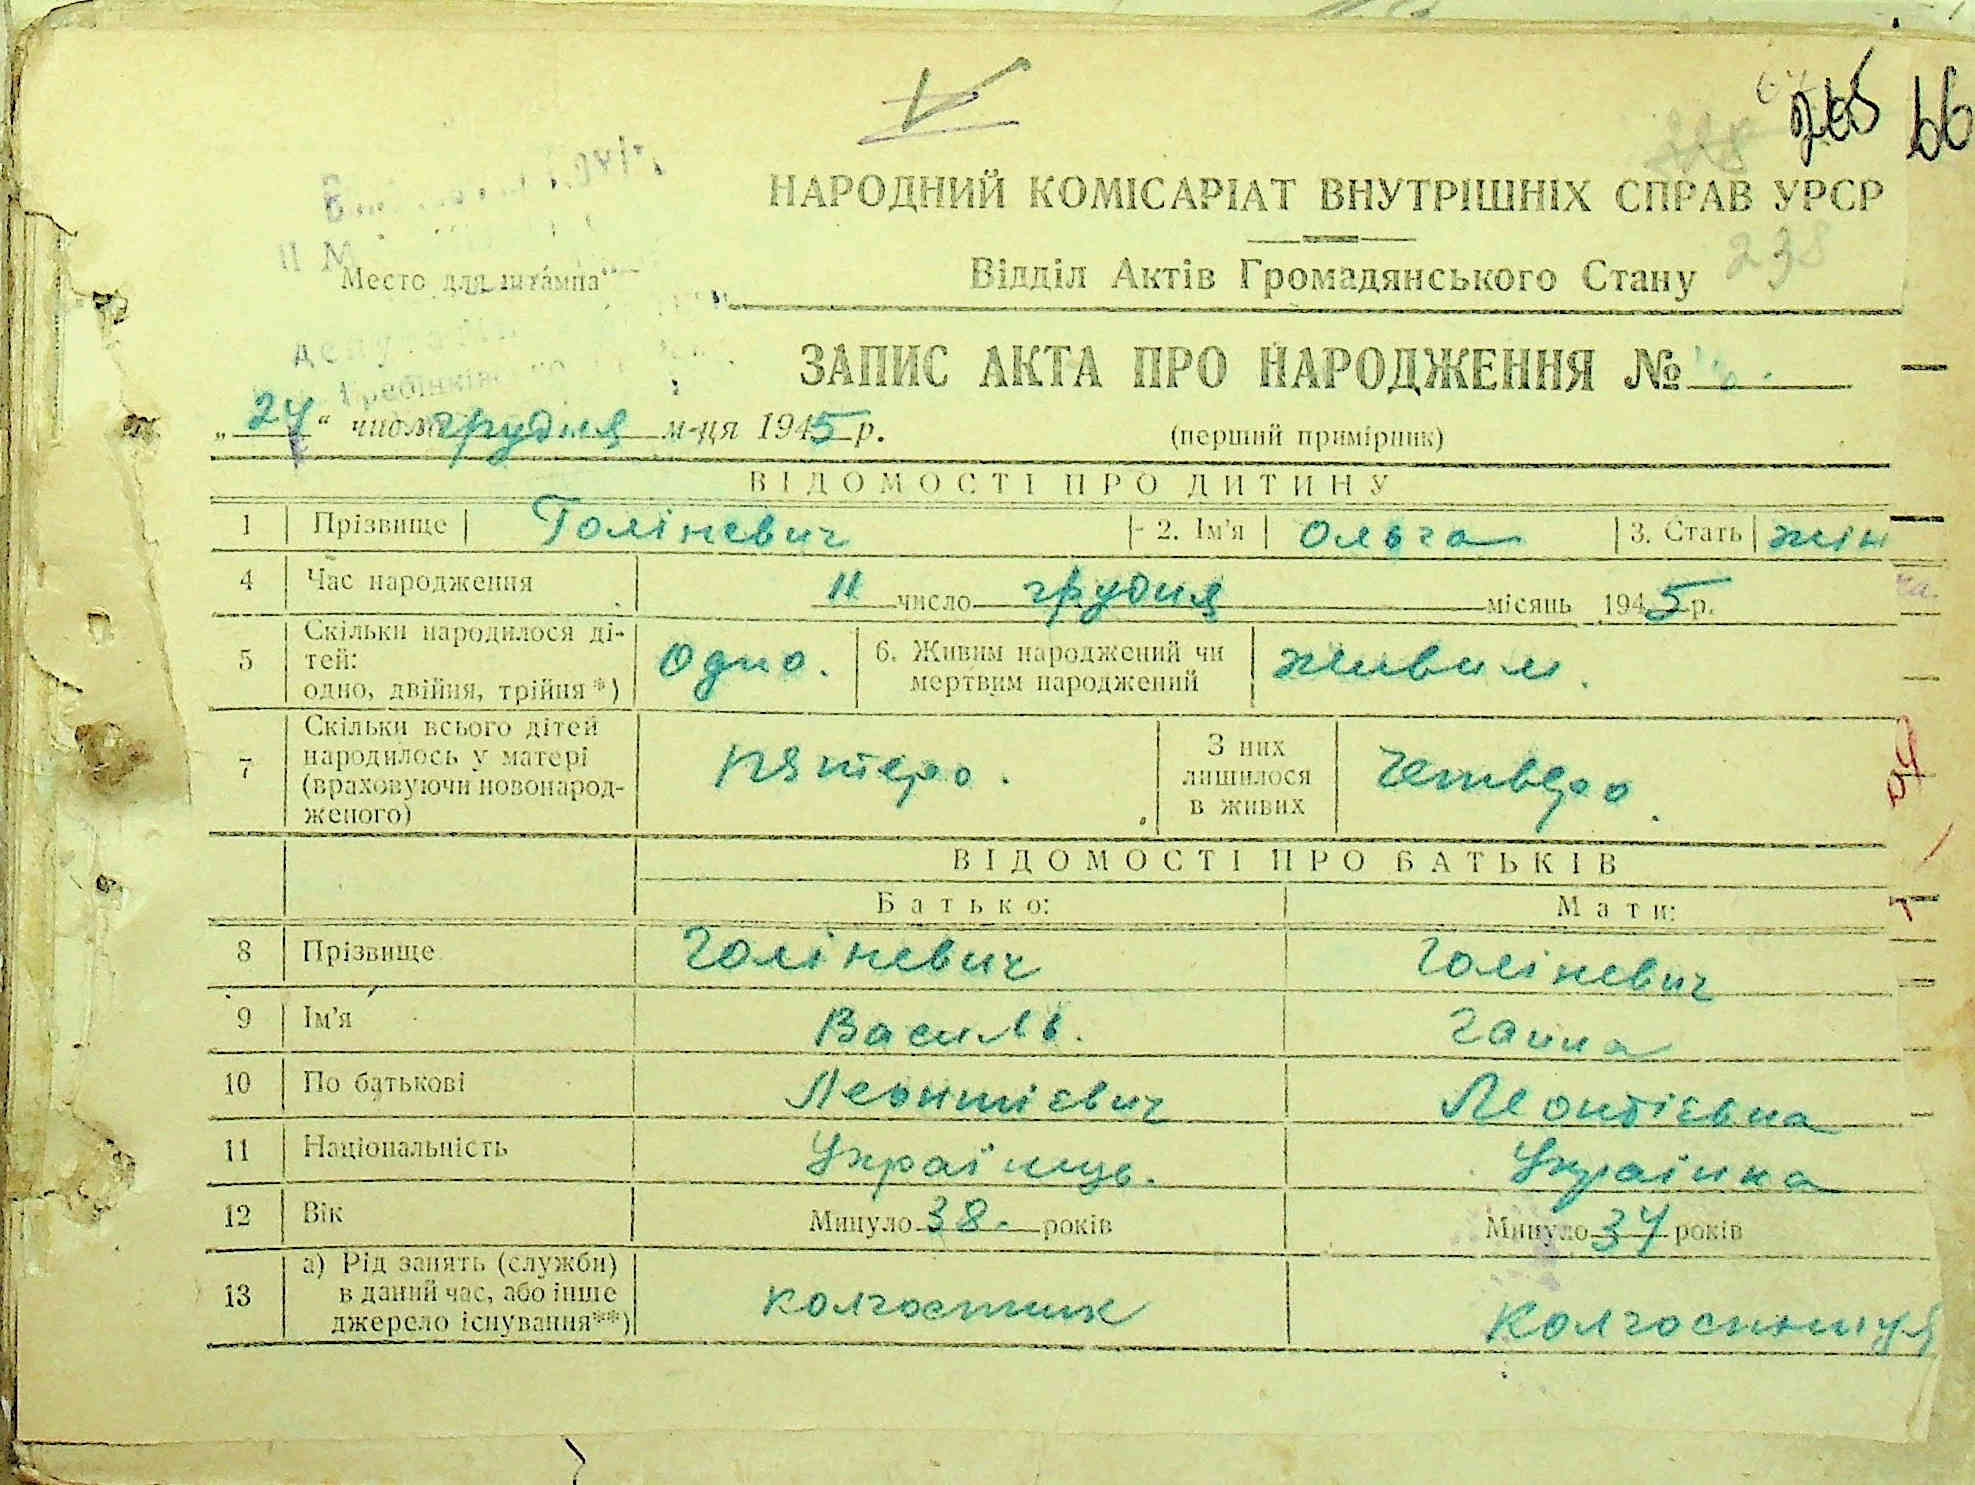 265 66
НАРОДНИЙ КОМІСАРІАТ ВНУТРІШНІХ СПРАВ УРСР
238
„Место для штампа“
Відділ Актів Громадянського Стану
ЗАПИС АКТА ПРО НАРОДЖЕННЯ №
„24“ числа грудня м-ця 1945 р.
(перший примірник)
ВІДОМОСТІ ПРО ДИТИНУ
1 Прізвище Голіневич 2. Ім'я Ольга 3. Стать жін
4 Час народження 11 число грудня місяць 1945 р.
5 Скільки народилося ді-
тей:
одно, двійня, трійня*) Одно. 6. Живим народжений чи
мертвим народжений живим.
7 Скільки всього дітей
народилось у матері
(враховуючи новонарод-
женого) пятеро. З них
лишилося
в живих четверо.
ВІДОМОСТІ ПРО БАТЬКІВ
Батько: Мати:
8 Прізвище Голіневич Голіневич
9 Ім'я Василь. Ганна
10 По батькові Леонтієвич Леонтієвна
11 Національність Українць. Українка
12 Вік Минуло 38. років Минуло 34 років
13 а) Рід занять (служби)
в даний час, або інше
джерело існування**) колгоспник Колгоспниця